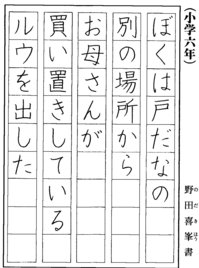 (小学六年)
ぼくは戸だなの
別の場所から
お母さんが
買い置きしている
ルウを出した
野田喜峯書
のだきほう